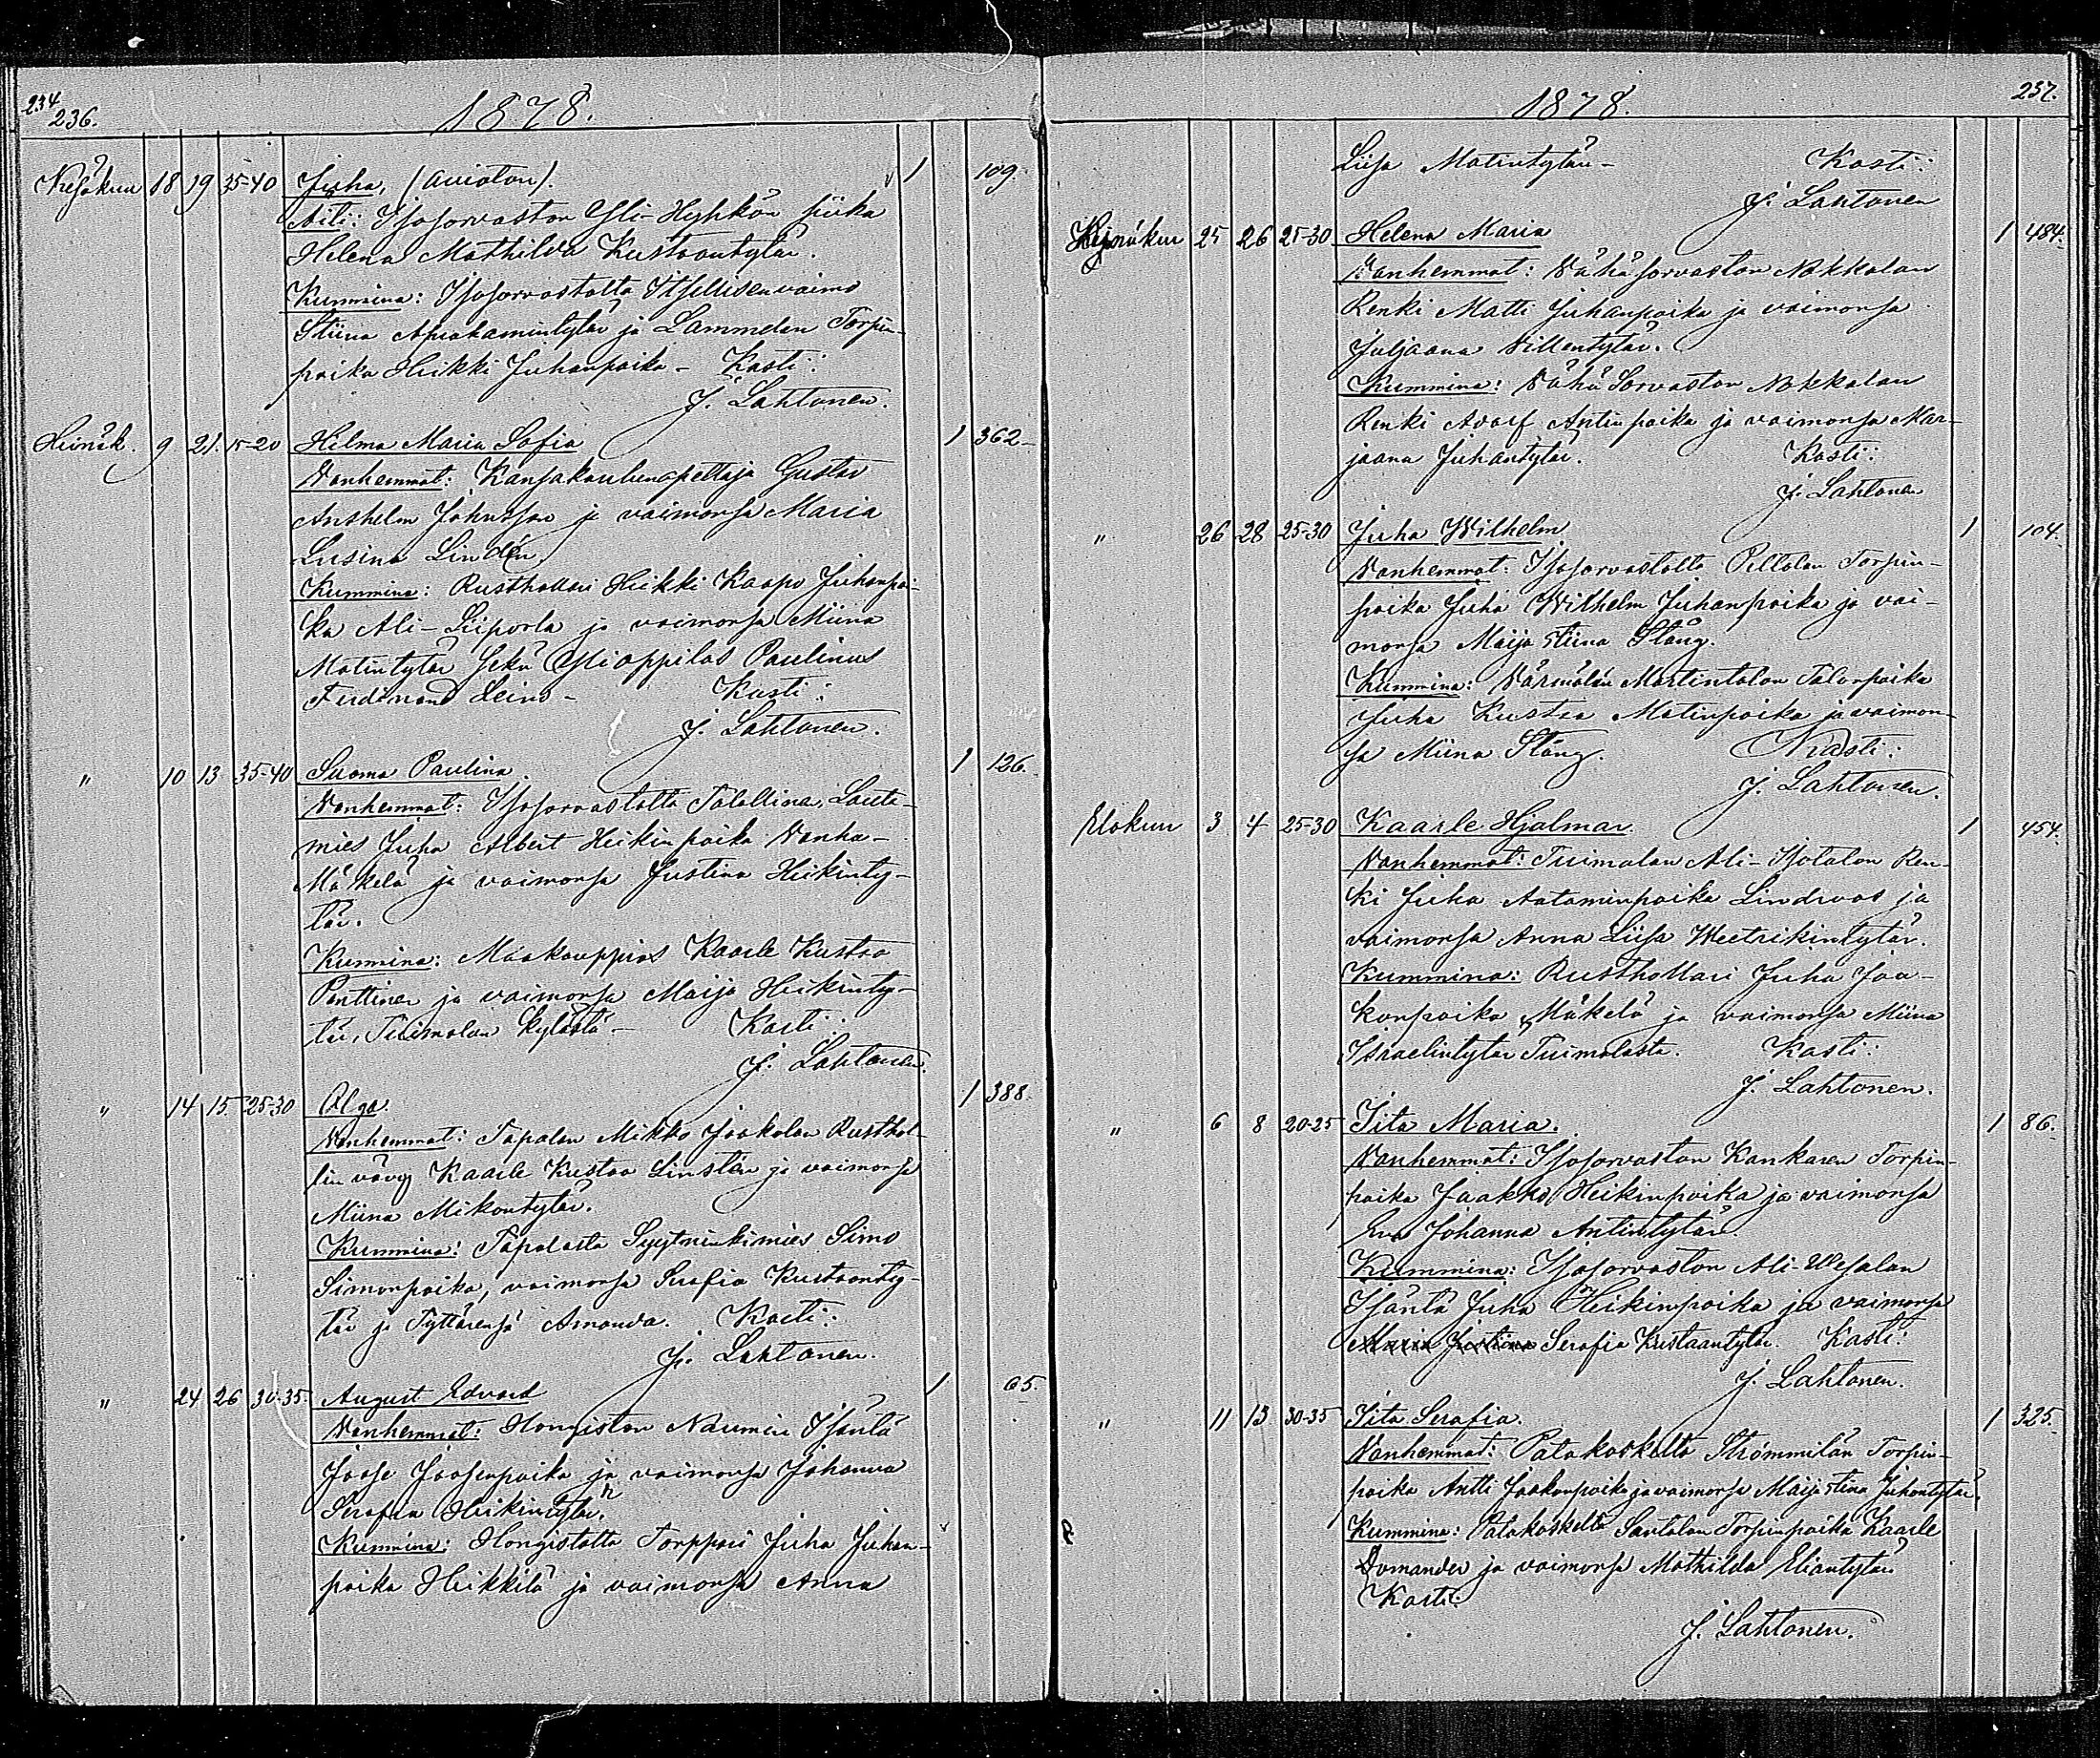 234
236.
1878.
Kesäkuu 18 19 35-40 Juha, (avioton). 1 109.
Äiti: Isosorvaston Yli-Hyhkön piika
Helena Mathilda Kustaantytär.
Kummina: Isosorvastolta Itsellisenvaimo
Stiina Aprahamintytär ja Lammelan Torpin-
poika Heikki Juhanpoika - Kasti:
J. Lahtonen.
Heinäk. 9 21. 15-20 Hilma Maria Sofia 1 362
Vanhemmat: Kansakoulunopettaja Gustav
Anshelm Johnsson ja vaimonsa Maria
Lusina Lindén
Kummina: Rusthollari Heikki Kaapo Juhanpoi-
ka Ali-Liiporla ja vaimonsa Miina
Matintytär sekä Ylioppilas Paulinus
Ferdinand Leino - Kasti:
J. Lahtonen.
" 10 13 35-40 Suoma Paulina 1 126.
Vanhemmat: Isosorvastolta Talollinen, Lauta-
mies Juha Albert Heikinpoika Vanha-
Mäkelä ja vaimonsa Justina Heikinty-
tär.
Kummina: Maakauppias Kaarle Kustaa
Penttinen ja vaimonsa Maija Heikinty-
tär, Tuimalan kylästä - Kasti:
J. Lahtonen.
" 14 15 25-30 Olga. 1 388.
Vanhemmat: Tapalan Mikko Jaakolan Rusthol-
lin vävy Kaarle Kustaa Linstén ja vaimonsa
Miina Mikontytär.
Kummina: Tapalasta Syytninkimies Simo
Simonpoika, vaimonsa Serafia Kustaanty-
tär ja Tyttärensä Amanda. Kasti:
J. Lahtonen.
" 24 26 30-35. August Edvard 1 65.
Vanhemmat: Hongiston Naumin Isäntä
Joose Joosenpoika ja vaimonsa Johanna
Serafia Heikintytär.
Kummina: Hongistolta Torppari Juha Juhan-
poika Heikkilä ja vaimonsa Anna
237.
1878.
Liisa Matintytär - Kasti:
J. Lahtonen
Heinäkuu 25 26 25-30 Helena Maria 1 484.
Vanhemmat: Vähäsorvaston Nokkalan
Renki Matti Juhanpoika ja vaimonsa
Juljaana Villentytär.
Kummina: Vähä Sorvaston Nokkalan
Renki Adolf Antinpoika ja vaimonsa Mar-
jaana Juhantytär. Kasti:
J. Lahtonen
" 26 28 25-30 Juha Wilhelm 1 104.
Vanhemmat: Isosorvastolta Peltolan Torpin-
poika Juha Wilhelm Juhanpoika ja vai-
monsa Maija Stiina Stång.
Kummina: Värmälän Martintalon Talonpoika
Juha Kustaa Matinpoika ja vaimon-
sa Miina Stång. Kasti:
J. Lahtonen.
Elokuu 3 4 25-30 Kaarle Hjalmar. 1 454.
Vanhemmat: Tuimalan Ali-Isotalon Ren-
ki Juha Aataminpoika Lindroos ja
vaimonsa Anna Liisa Weetrikintytär.
Kummina: Rusthollari Juha Jaa-
konpoika Mäkelä ja vaimonsa Miina
Israelintytär Tuimalasta. Kasti:
J. Lahtonen.
" 6 8 20-25 Iita Maria. 1 86.
Vanhemmat: Isosorvaston Kankaren Torpin-
poika Jaakko Heikinpoika ja vaimonsa
Eva Johanna Antintytär.
Kummina: Isosorvaston Ali-Wesalan
Isäntä Juha Heikinpoika ja vaimonsa
Maria Justiina Serafia Kustaantytär. Kasti:
J. Lahtonen.
" 11 13 30-35 Iita Serafia. 1 325.
Vanhemmat: Patakoskelta Strömmilän Torpin-
poika Antti Jaakonpoika ja vaimonsa Maijastina Juhontytär.
Kummina: Patakoskelta Santalan Torpinpoika Kaarle
Domander ja vaimonsa Mathilda Eliantytär
Kasti:
J. Lahtonen.